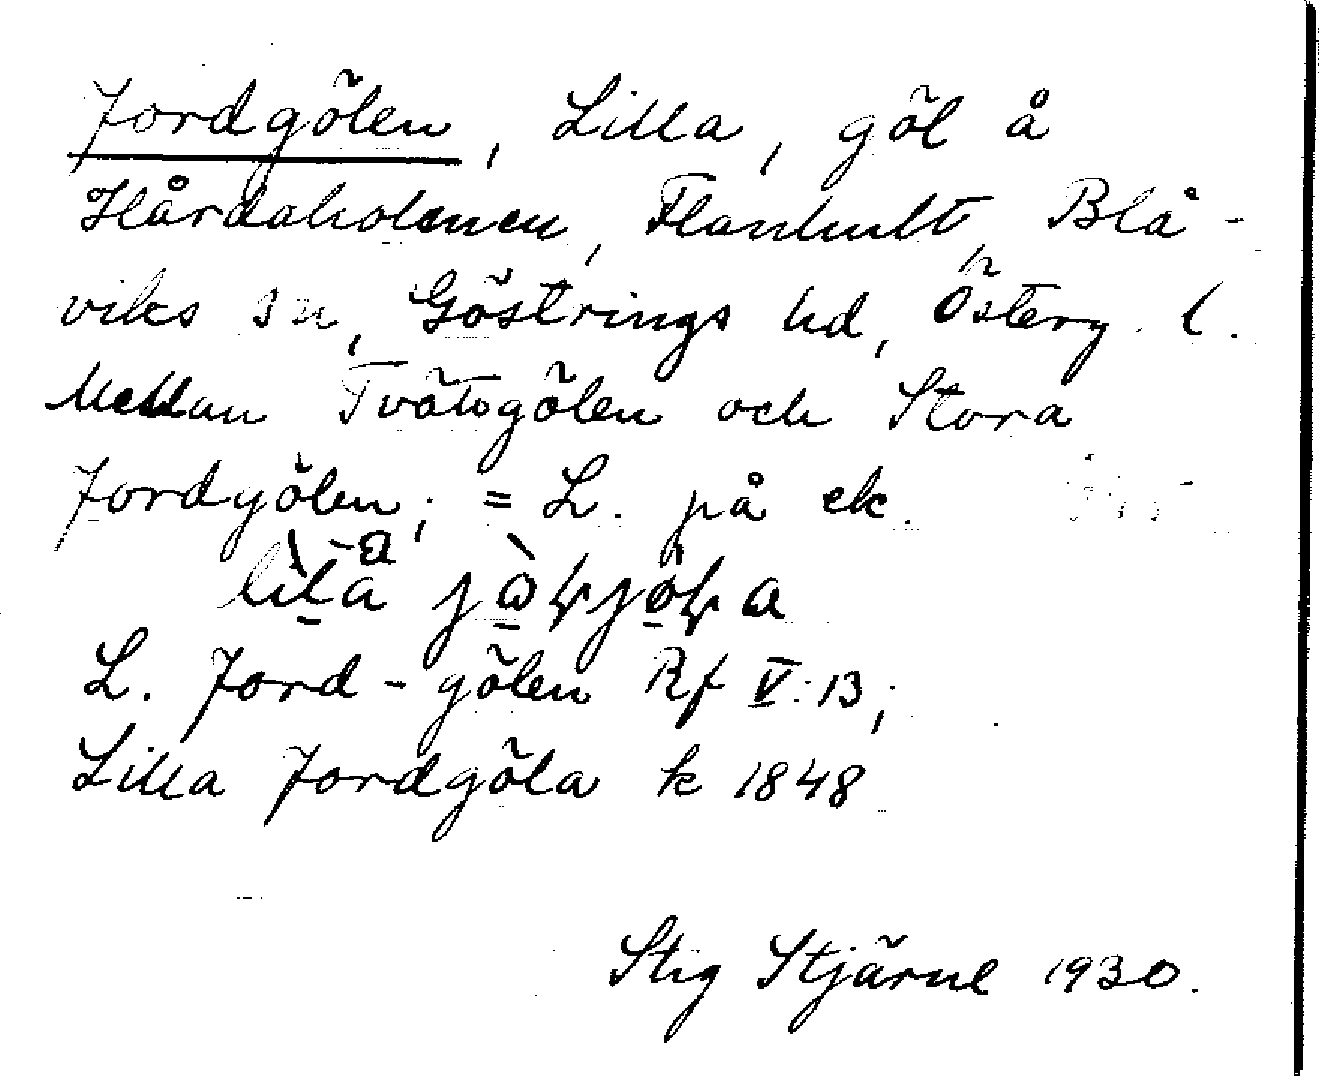 Jordgölen, Lilla, göl å
Hårdaholmen, Flanhult, Blå-
viks sn, Göstrings hd, Österg. l.
Mellan Tvätsgölen och Stora
Jordgölen; = L. på ek.
L. Jord-gölen Rf V:13;
Lilla Jordgöla k 1848
Stig Stjärne 1930.